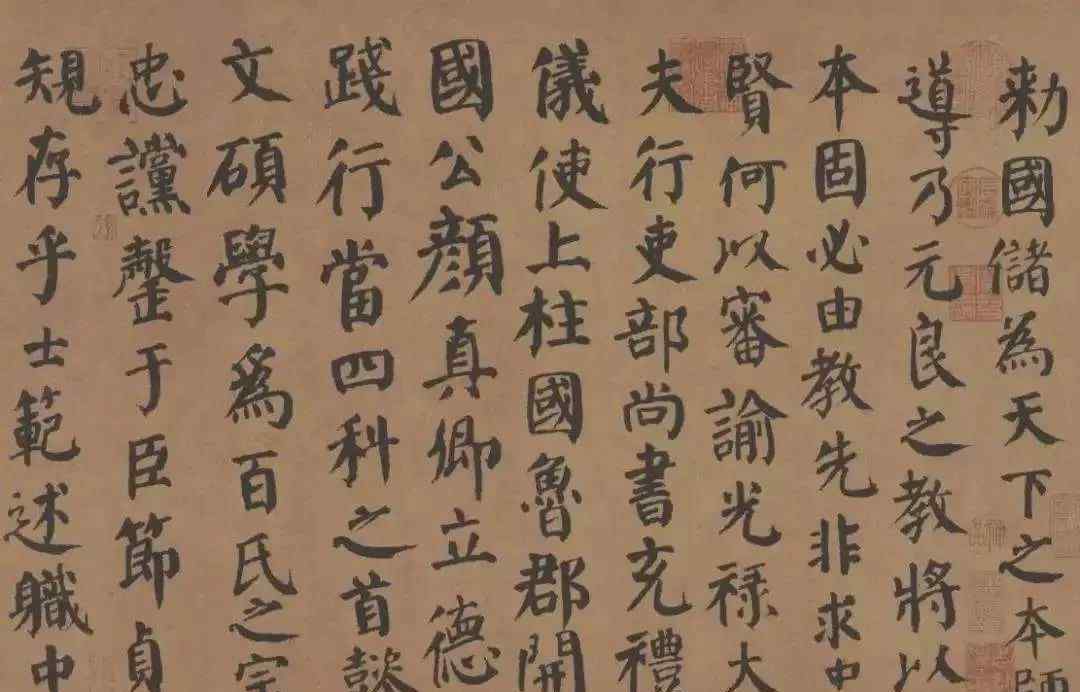 勑國儲為天下之本師
導乃元良之教將以
本固必由教先非求中
賢何以審諭光祿大
夫行吏部尚書充禮
儀使上柱國魯郡開
國公顏真卿立德
踐行當四科之首懿
文碩學爲百氏之宗
忠讜罄于臣節貞
規存乎士範述職中